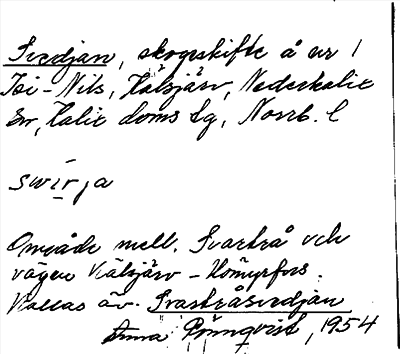 Svedjan, skogsskifte å nr 1
Isi-Nils, Kälsjärv, Nederkalix
Sn, Kalix doms lg, Norrb. l
swirja
Område mell. Svartrå och
vägen Kälsjärv -
Kallas äv. Svartråsvedjan
Anna Rönnqvist, 1954